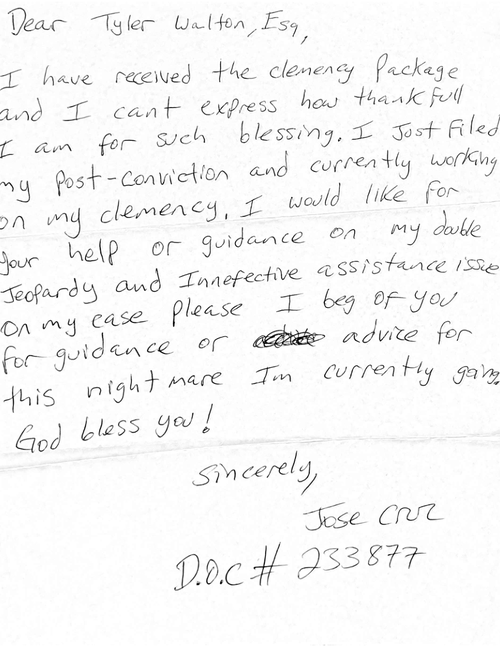 Dear Tyler Walton, Esq,
I have received the clemency Package
and I cant express how thankfull
I am for such blessing. I Just Filed
my Post-Conviction and currently working
on my clemency. I would like for
your help or guidance on my double
Jeopardy and Innefective assistance issue
on my case please I beg of you
for guidance or advice for
this nightmare Im currently going.
God bless you!
Sincerely,
Jose Cruz
D.O.C # 233877